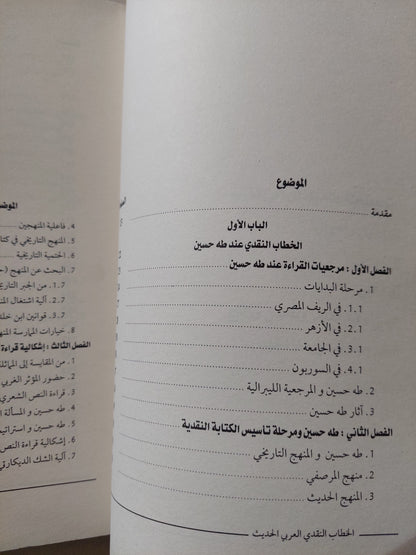 الموضوع
مقدمة
الباب الأول
الخطاب النقدي عند طه حسين
الفصل الأول : مرجعيات القراءة عند طه حسين
1. مرحلة البدايات
1.1. في الريف المصري
2.1. في الأزهر
3.1. في الجامعة
4.1. في السوربون
2. طه حسين و المرجعية الليبرالية
3. آثار طه حسين
الفصل الثاني : طه حسين ومرحلة تأسيس الكتابة النقدية
1. طه حسين و المنهج التاريخي
2. منهج المرصفي
3. المنهج الحديث
الخطاب النقدي العربي الحديث
4. فاعلية المنهجين
5. المنهج التاريخي في
6. الحتمية التاريخية
7. البحث عن المنهج
1.7. من الجبر
2.7. آلية اشتغال
3.7. قوانين ابن
8. خيارات الممارسة
الفصل الثالث : إشكالية قراءة
1. من المقايسة إلى
2. حضور المؤثر الغربي
3. قراءة النص الشعري
4. طه حسين و المسألة
5. طه حسين و
6. إشكالية قراءة النص
7. آلية الشك الديكارتي